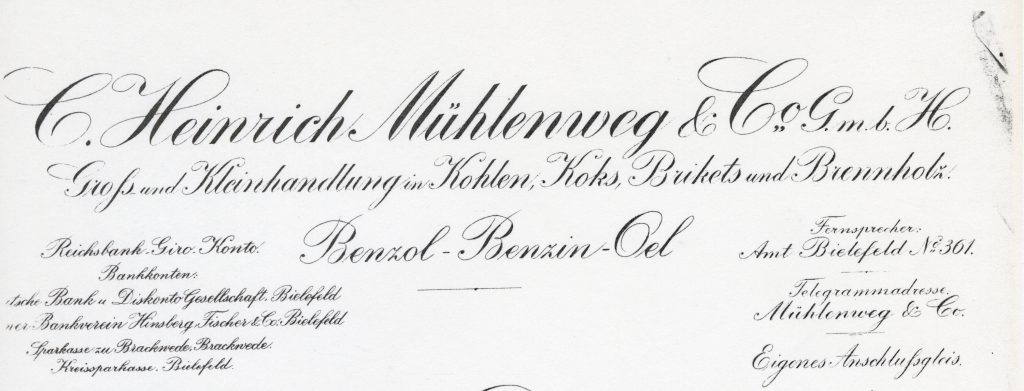 C. Heinrich Mühlenweg & Co. G.m.b.H.
Gross und Kleinhandlung in Kohlen, Koks, Brikets und Brennholz.
Benzol - Benzin - Oel
Reichsbank-Giro-Konto.
Bankkonten:
tsche Bank u Diskonto Gesellschaft, Bielefeld
ner Bankverein Hinsberg, Fischer & Co. Bielefeld
Sparkasse zu Brackwede, Brackwede.
Kreissparkasse. Bielefeld.
Fernsprecher:
Amt Bielefeld No. 361.
Telegrammadresse.
Mühlenweg & Co.
Eigenes Anschlußgleis.